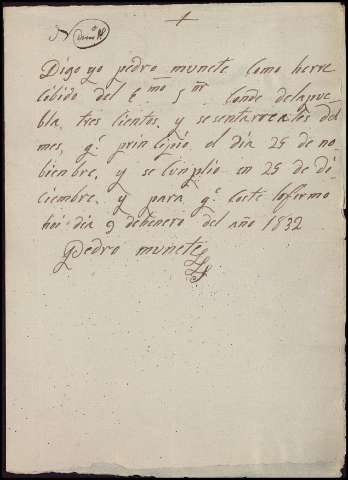 Digo yo pedro munete como herre
cibido del Emo Sr Conde delapue
bla, tres cientos, y sesentarreales del
mes, q.e prinzipió el dia 25 de no
bienbre, y se cunplio en 25 de di
ciembre. y para q.e coste lofirmo
hoi dia 9 debenero del año 1832
Pedro munete